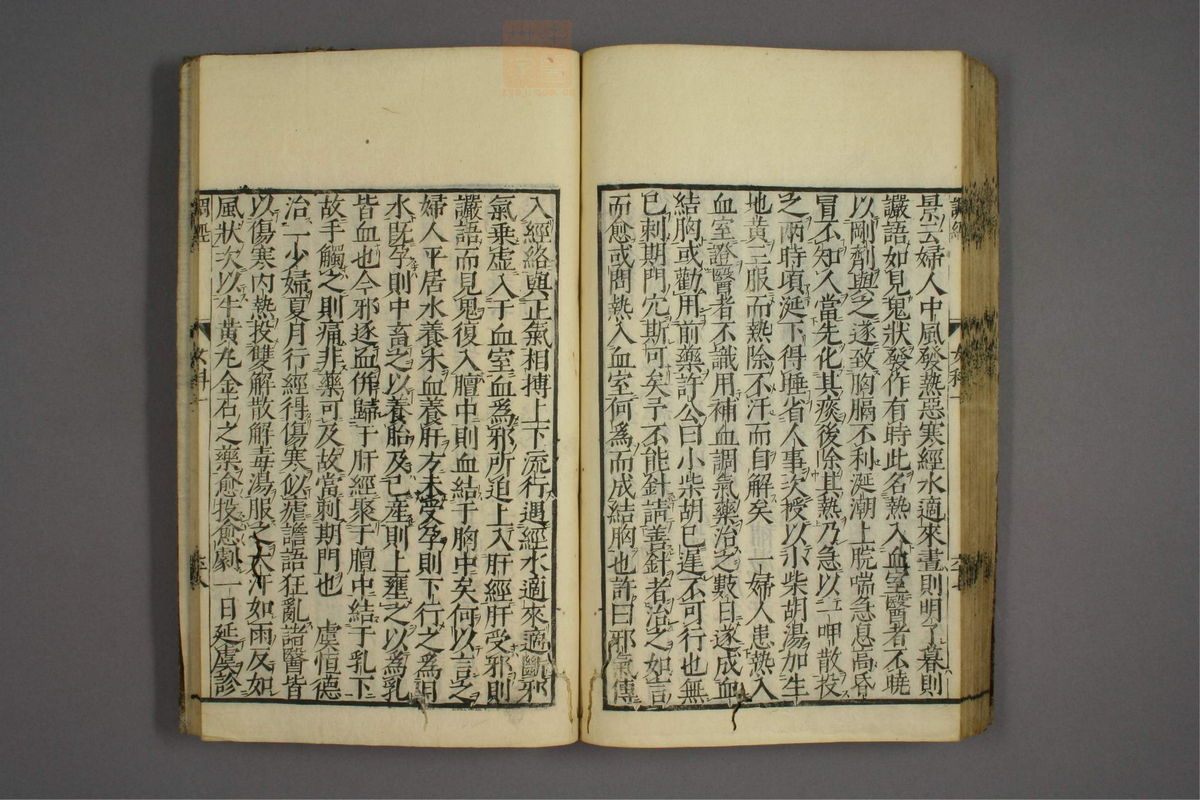 景云婦人中風發熱惡寒經水適來晝則明了暮則
讝語如見鬼狀發作有時此名熱入血室醫者不曉
以剛劑與之遂致胸膈不利涎潮上脘喘急息高昏
冒不知人當先化其痰後除其熱乃急以一呷散投
之兩時頃涎下得睡省人事次授以小柴胡湯加生
地黃三服而熱除不汗而自解矣 一婦人患熱入
血室證醫者不識用補血調氣藥治之數日遂成血
結胸或勸用前藥許公曰小柴胡已遲不可行也無
已刺期門穴斯可矣予不能針請善針者治之如言
而愈或問熱入血室何爲而成結胸也許曰邪氣傳
入經絡與正氣相搏上下流行遇經水適來適斷邪
氣乘虛入于血室血爲邪所迫上入肝經肝受邪則
讝語而見鬼復入膻中則血結于胸中矣何以言之
婦人平居水養木血養肝方未受孕則下行之爲月
水既孕則中畜之以養胎及已產則上壅之以爲乳
皆血也今邪逐血併歸于肝經聚于膻中結于乳下
故手觸之則痛非藥可及故當刺期門也 虞恒德
治一少婦夏月行經得傷寒似瘧譫語狂亂諸醫皆
以傷寒内熱投雙解散解毒湯服之大汗如雨反如
風狀次以牛黃丸金石之藥愈投愈劇一日延虞診
調經
女科一